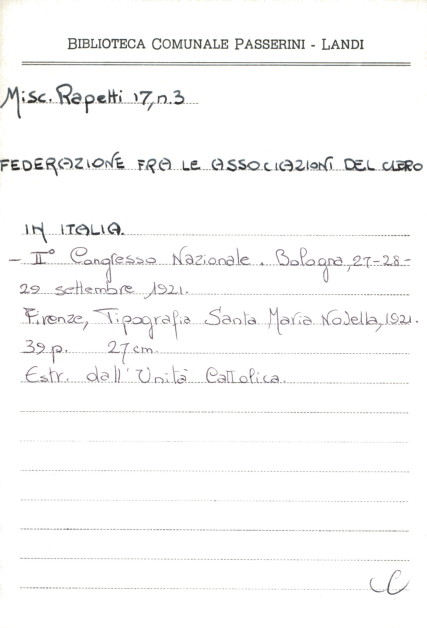 BIBLIOTECA COMUNALE PASSERINI - LANDI
Misc. Rapetti 17, n.3
FEDERAZIONE FRA LE ASSOCIAZIONI DEL CLERO
IN ITALIA.
- II° Congresso Nazionale. Bologna, 27-28-
29 settembre 1921.
Firenze, Tipografia Santa Maria Novella, 1921.
39 p. 27 cm.
Estr. dall'Unità Cattolica.